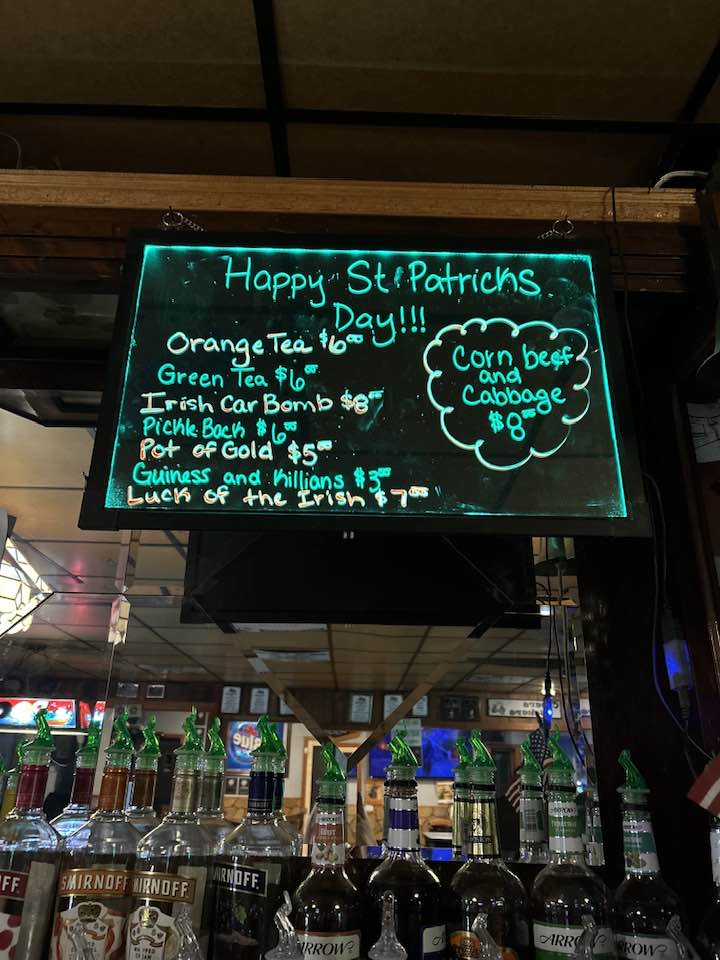 Happy St. Patricks
Day!!!
Orange Tea $6.00
Green Tea $6.00
Irish Car Bomb $8.00
Pickle Back $6.00
Pot of Gold $5.00
Guiness and Killians $3.00
Luck of the Irish $7.00
Corn beef
and
Cabbage
$8.00
SMIRNOFF
RNOFF
ARROW
ARR
ROW